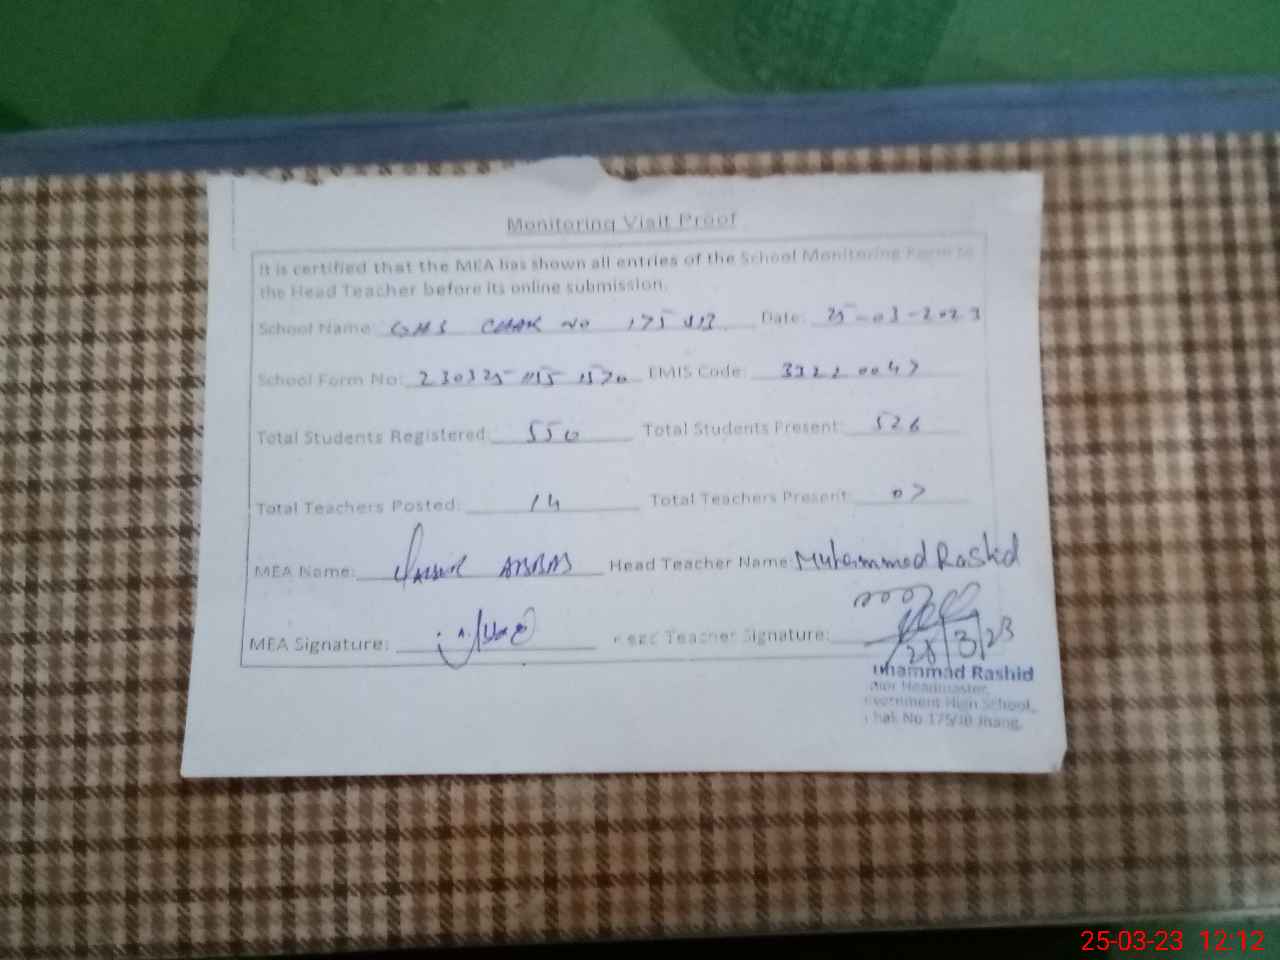 Monitoring Visit Proof
It is certified that the MEA has shown all entries of the School Monitoring Form to
the Head Teacher before its online submission.
School Name: GHS CHAK NO 175 JB Date: 25-03-2023
School Form No: EMIS Code: 33220047
Total Students Registered: 550 Total Students Present: 526
Total Teachers Posted: 14 Total Teachers Present: 07
MEA Name: ABBAS Head Teacher Name: Muhammad Rashid
MEA Signature: Head Teacher Signature:
/3/23
uhammad Rashid
nior Headmaster,
vernment High School,
Chak No 175/JB Jhang.
25-03-23 12:12